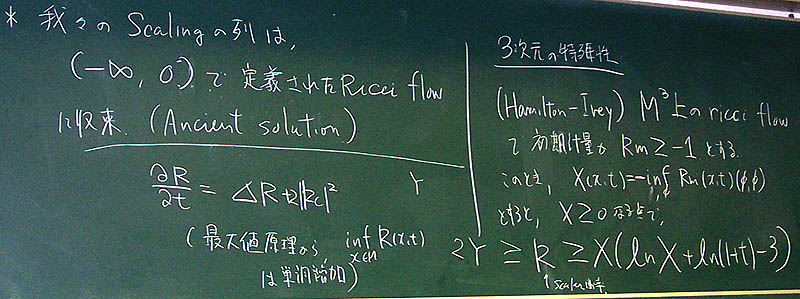 * 我々の Scaling の列は,
(-∞, 0) で 定義された Ricci flow
に収束. (Ancient solution)
∂R/∂t = ΔR + 2|Rc|²
(最大値原理から, inf_{x∈M} R(x,t)
は単調増加)
Y
3次元の特殊性
(Hamilton-Ivey) M³上の ricci flow
で 初期計量が Rm ≥ -1 とする.
このとき, X(x,t) = -inf Rm(x,t)(φ,φ)
とすると, X ≥ 0 なる点で,
2Y ≥ R ≥ X(ln X + ln(1+t) - 3)
↑ scalar 曲率